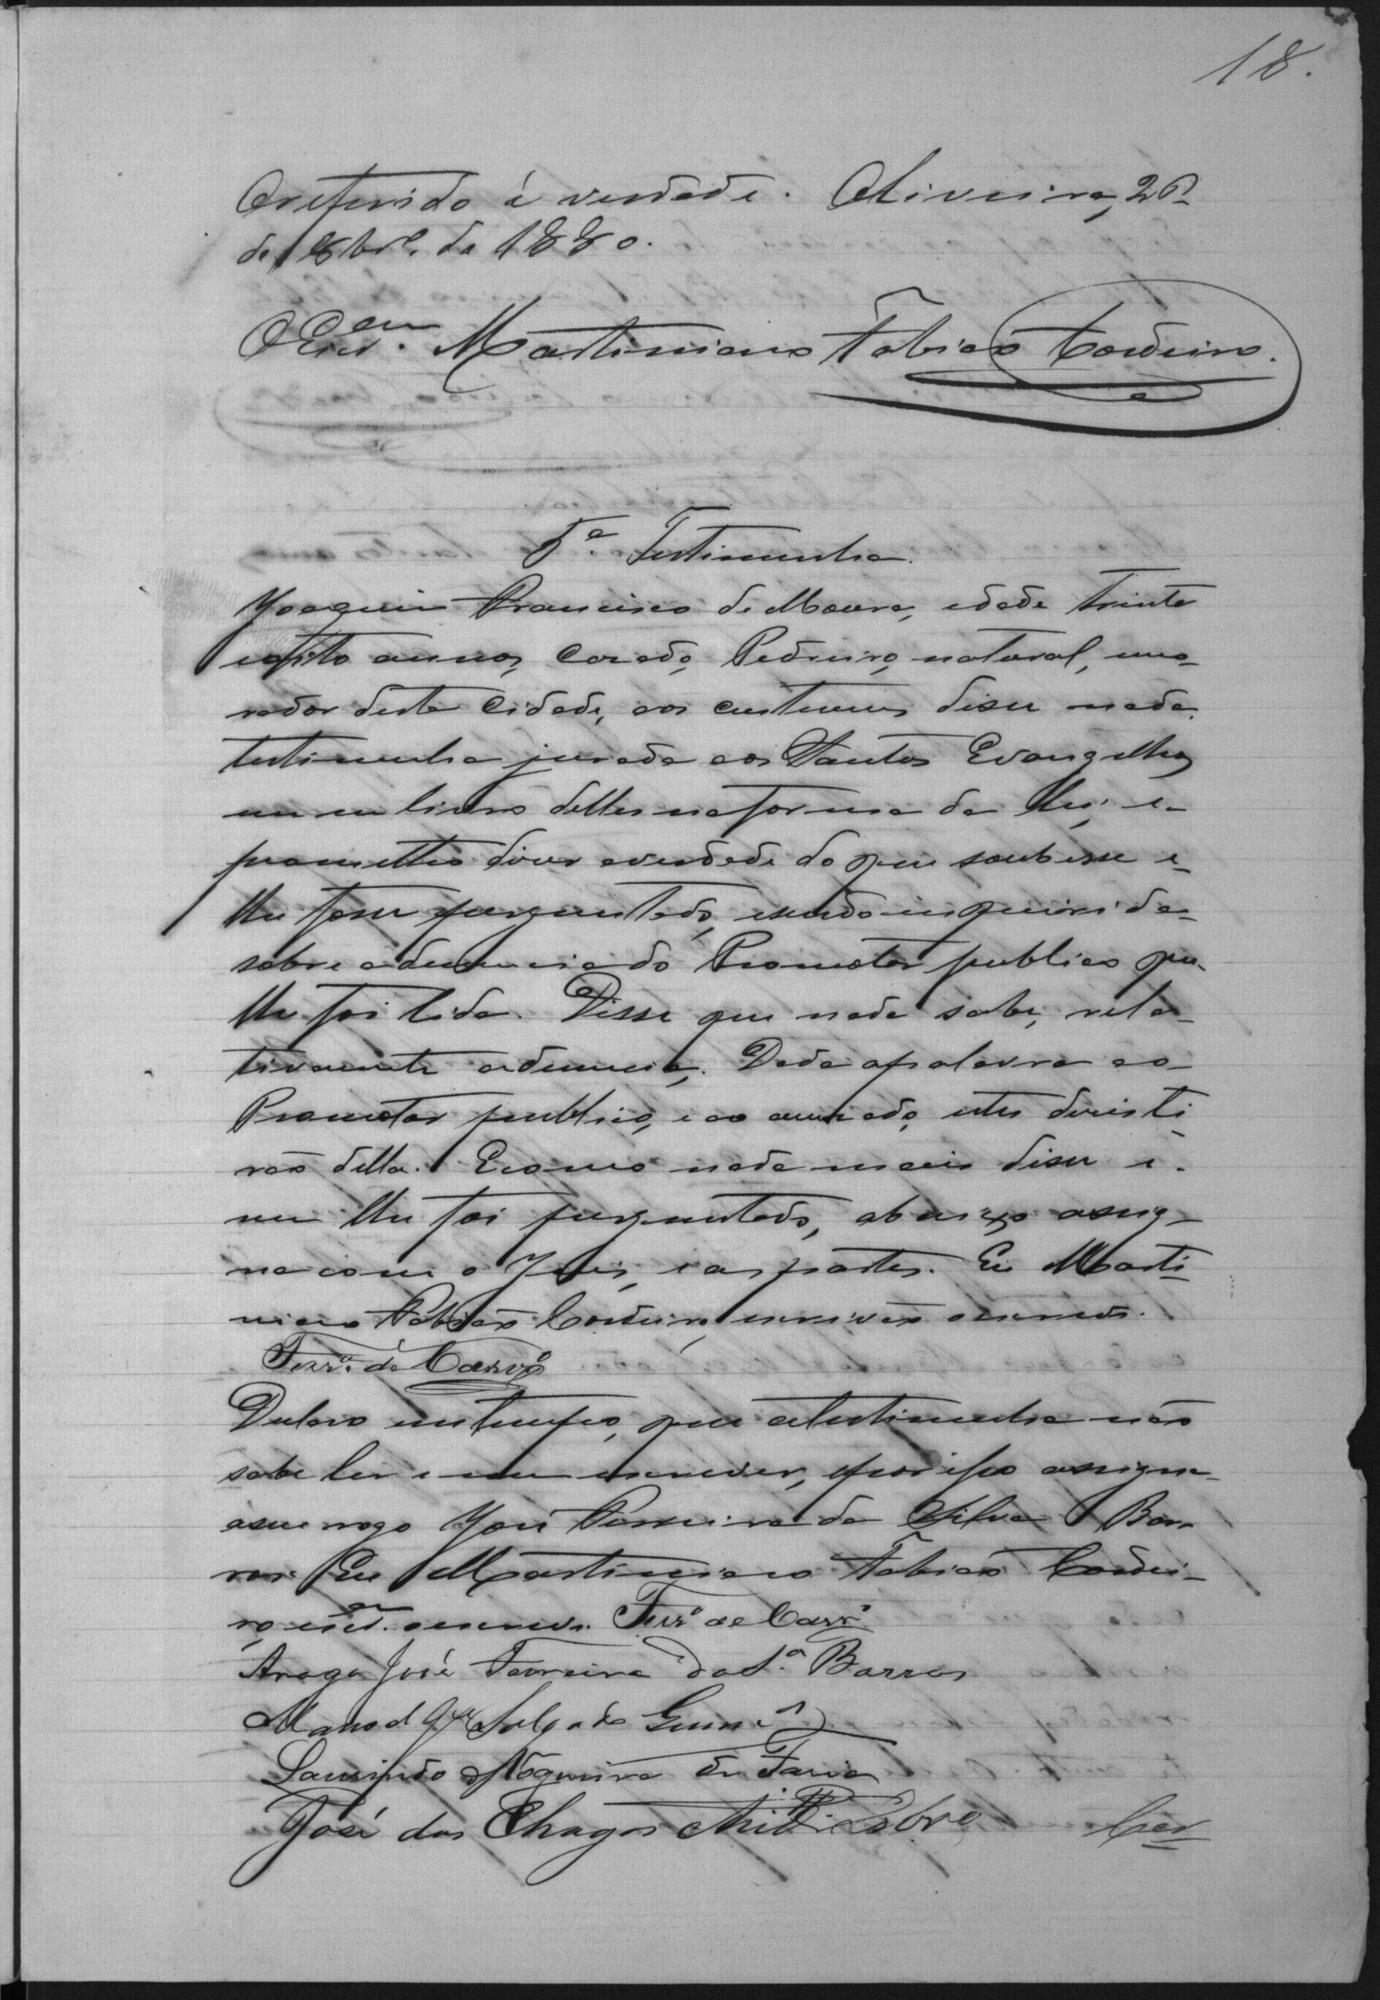 18.
O referido é verdade. Oliveira, 20
de 8br.º de 1880.
O Escr.am Martiniano Fabião Cordeiro.
5.ª Testimunha.
Joaquim Francisco de Moura, edade trinta
e oito annos, Casado, Pedreiro, natural, e mo-
rador desta Cidade, aos custumes disse nada.
testimunha jurada aos Santos Evangelhos
em um livro delles na forma da lei, e
prometteo diser a verdade do que soubesse e
lhe fosse perguntado, e sendo inquirida
sobre a denuncia do Promotor publico que
lhe foi lida. Disse que nada sabe, rela-
tivamente a denuncia. Dada a palavra ao
Promotor publico, e ao accusado, estes desisti-
rão della. E como nada mais disse e
nem lhe foi perguntado, abaixo assig-
na com o Juis, e as partes. Eu Marti-
niano Fabião Cordeiro, escrivão o escrevi.
Ferr.ª de Carv.º
Declaro em tempo, que a testimunha não
sabe ler e nem escrever, e por isso assigna
a seu rogo José Ferreira da Silva Bar-
ros. Eu Martiniano Fabião Cordei-
ro, escr.am o escrevi. Ferr.ª de Carv.º
A rogo José Ferreira da S.ª Barros
Manoel Salgado
Laurindo Nogueira de Faria
José das Chagas
Cer